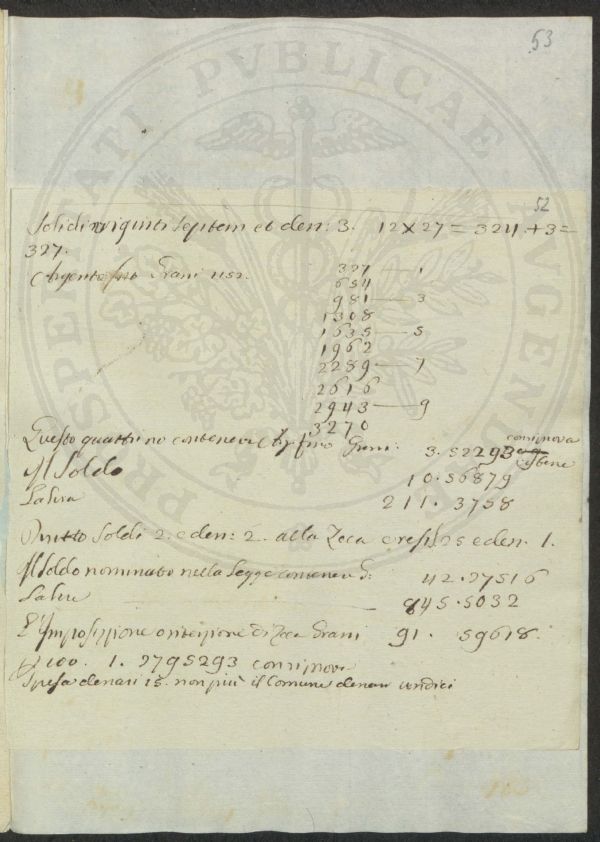 53
PROSPERITATI PVBLICAE AVGENDAE
52
Solidi viginti septem et den: 3. 12 X 27 = 324 + 3 =
327.
Argento fino Grani 1152.
327 — 1
654
981 — 3
1308
1635 — 5
1962
2289 — 7
2616
2943 — 9
3270
Questo quattrino conteneva Arg fino Grani: 3.52293
Il Soldo 10.56879
La lira 211.3758
soldi 2. e den: 2. alla Zeca e 25 e den. 1.
Il Soldo nominato nella Legge conteneva 42.27516
La lira 845.5032
L'Imposizione di Zeca Grani 91. 59618.
100. 1. 2795293
Spesa denari 15. non più il Comune denari undici